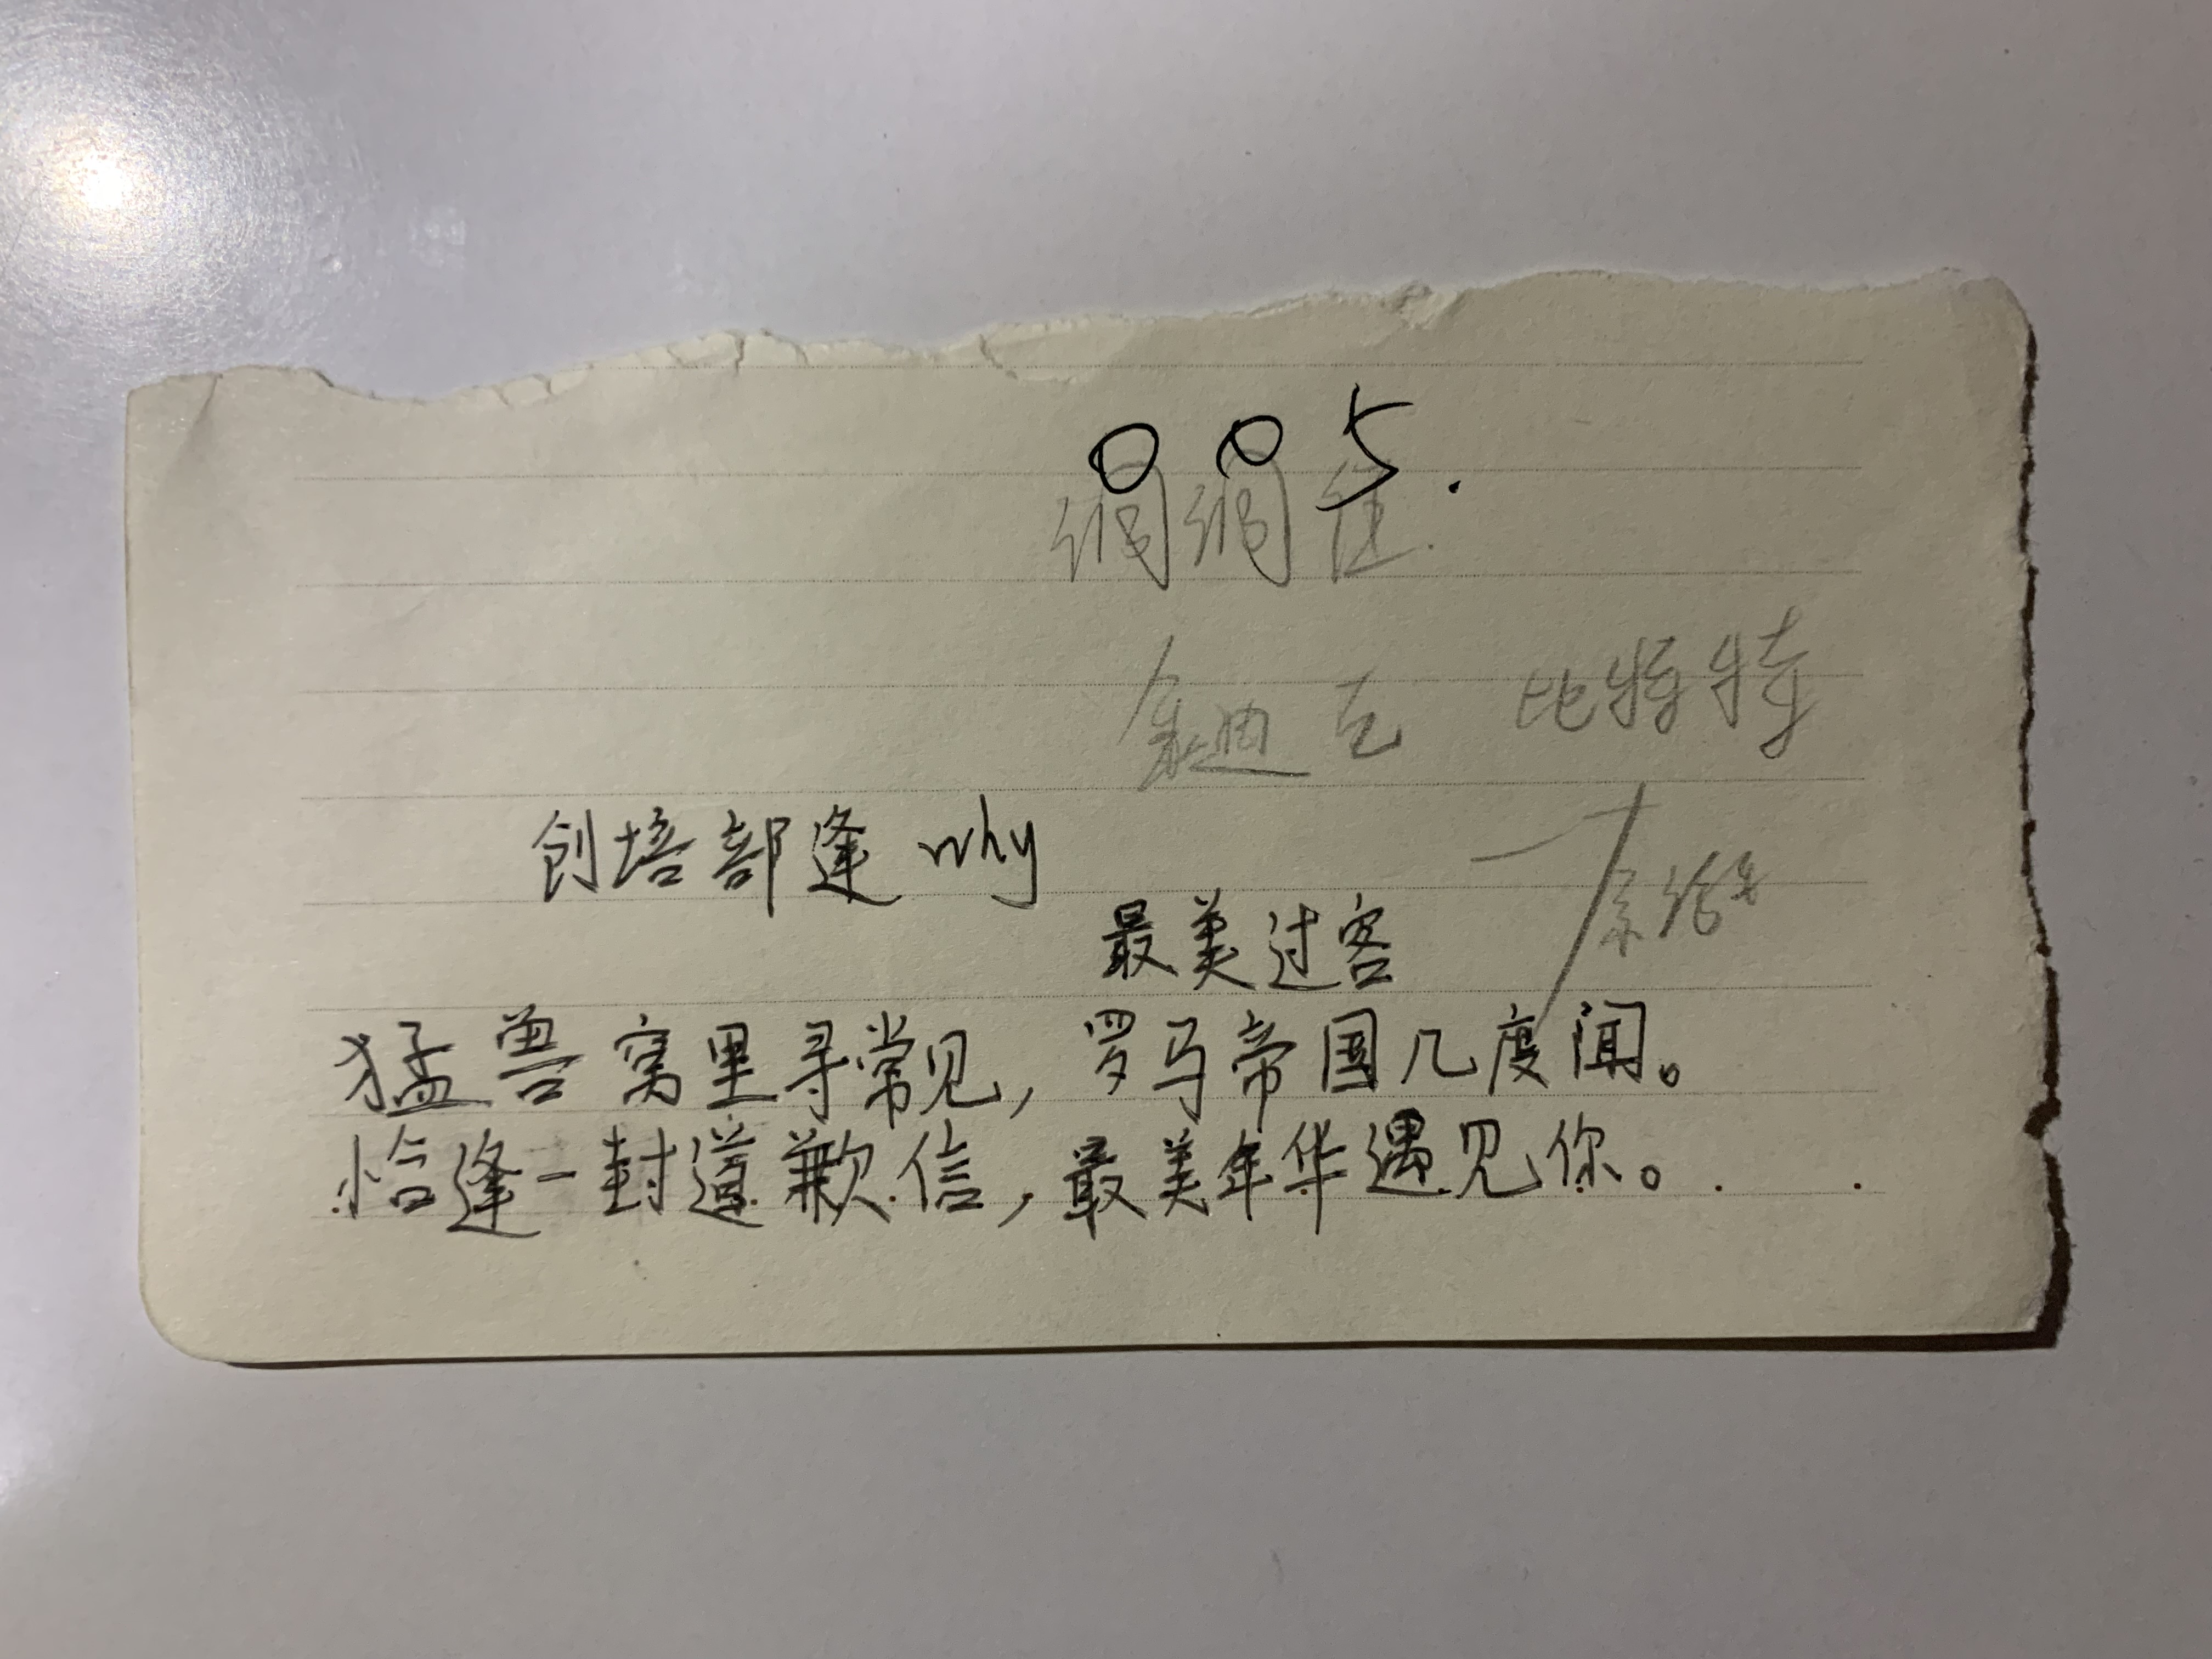 005.
比特特
创培部逢why
最美过客
猛兽窝里寻常见,罗马帝国几度闻。
恰逢一封道歉信,最美年华遇见你。. .